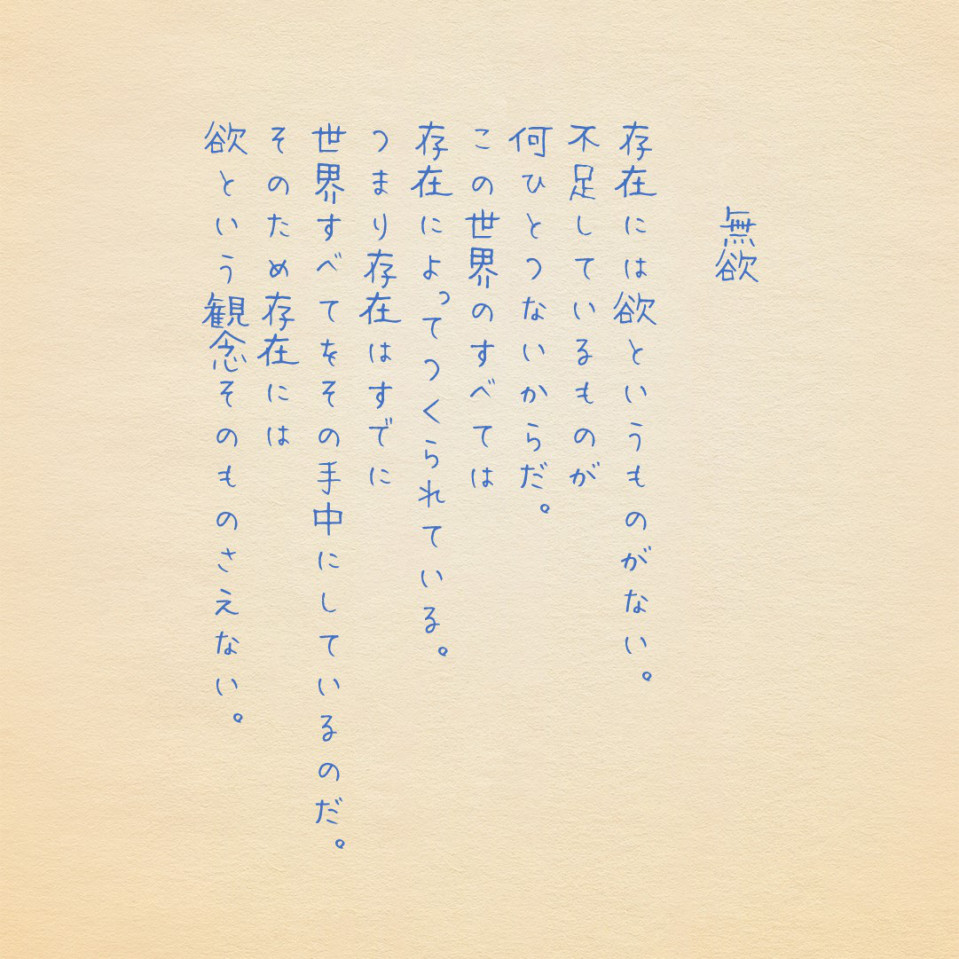 無欲
存在には欲というものがない。
不足しているものが
何ひとつないからだ。
この世界のすべては
存在によってつくられている。
つまり存在はすでに
世界すべてをその手中にしているのだ。
そのため存在には
欲という観念そのものさえない。